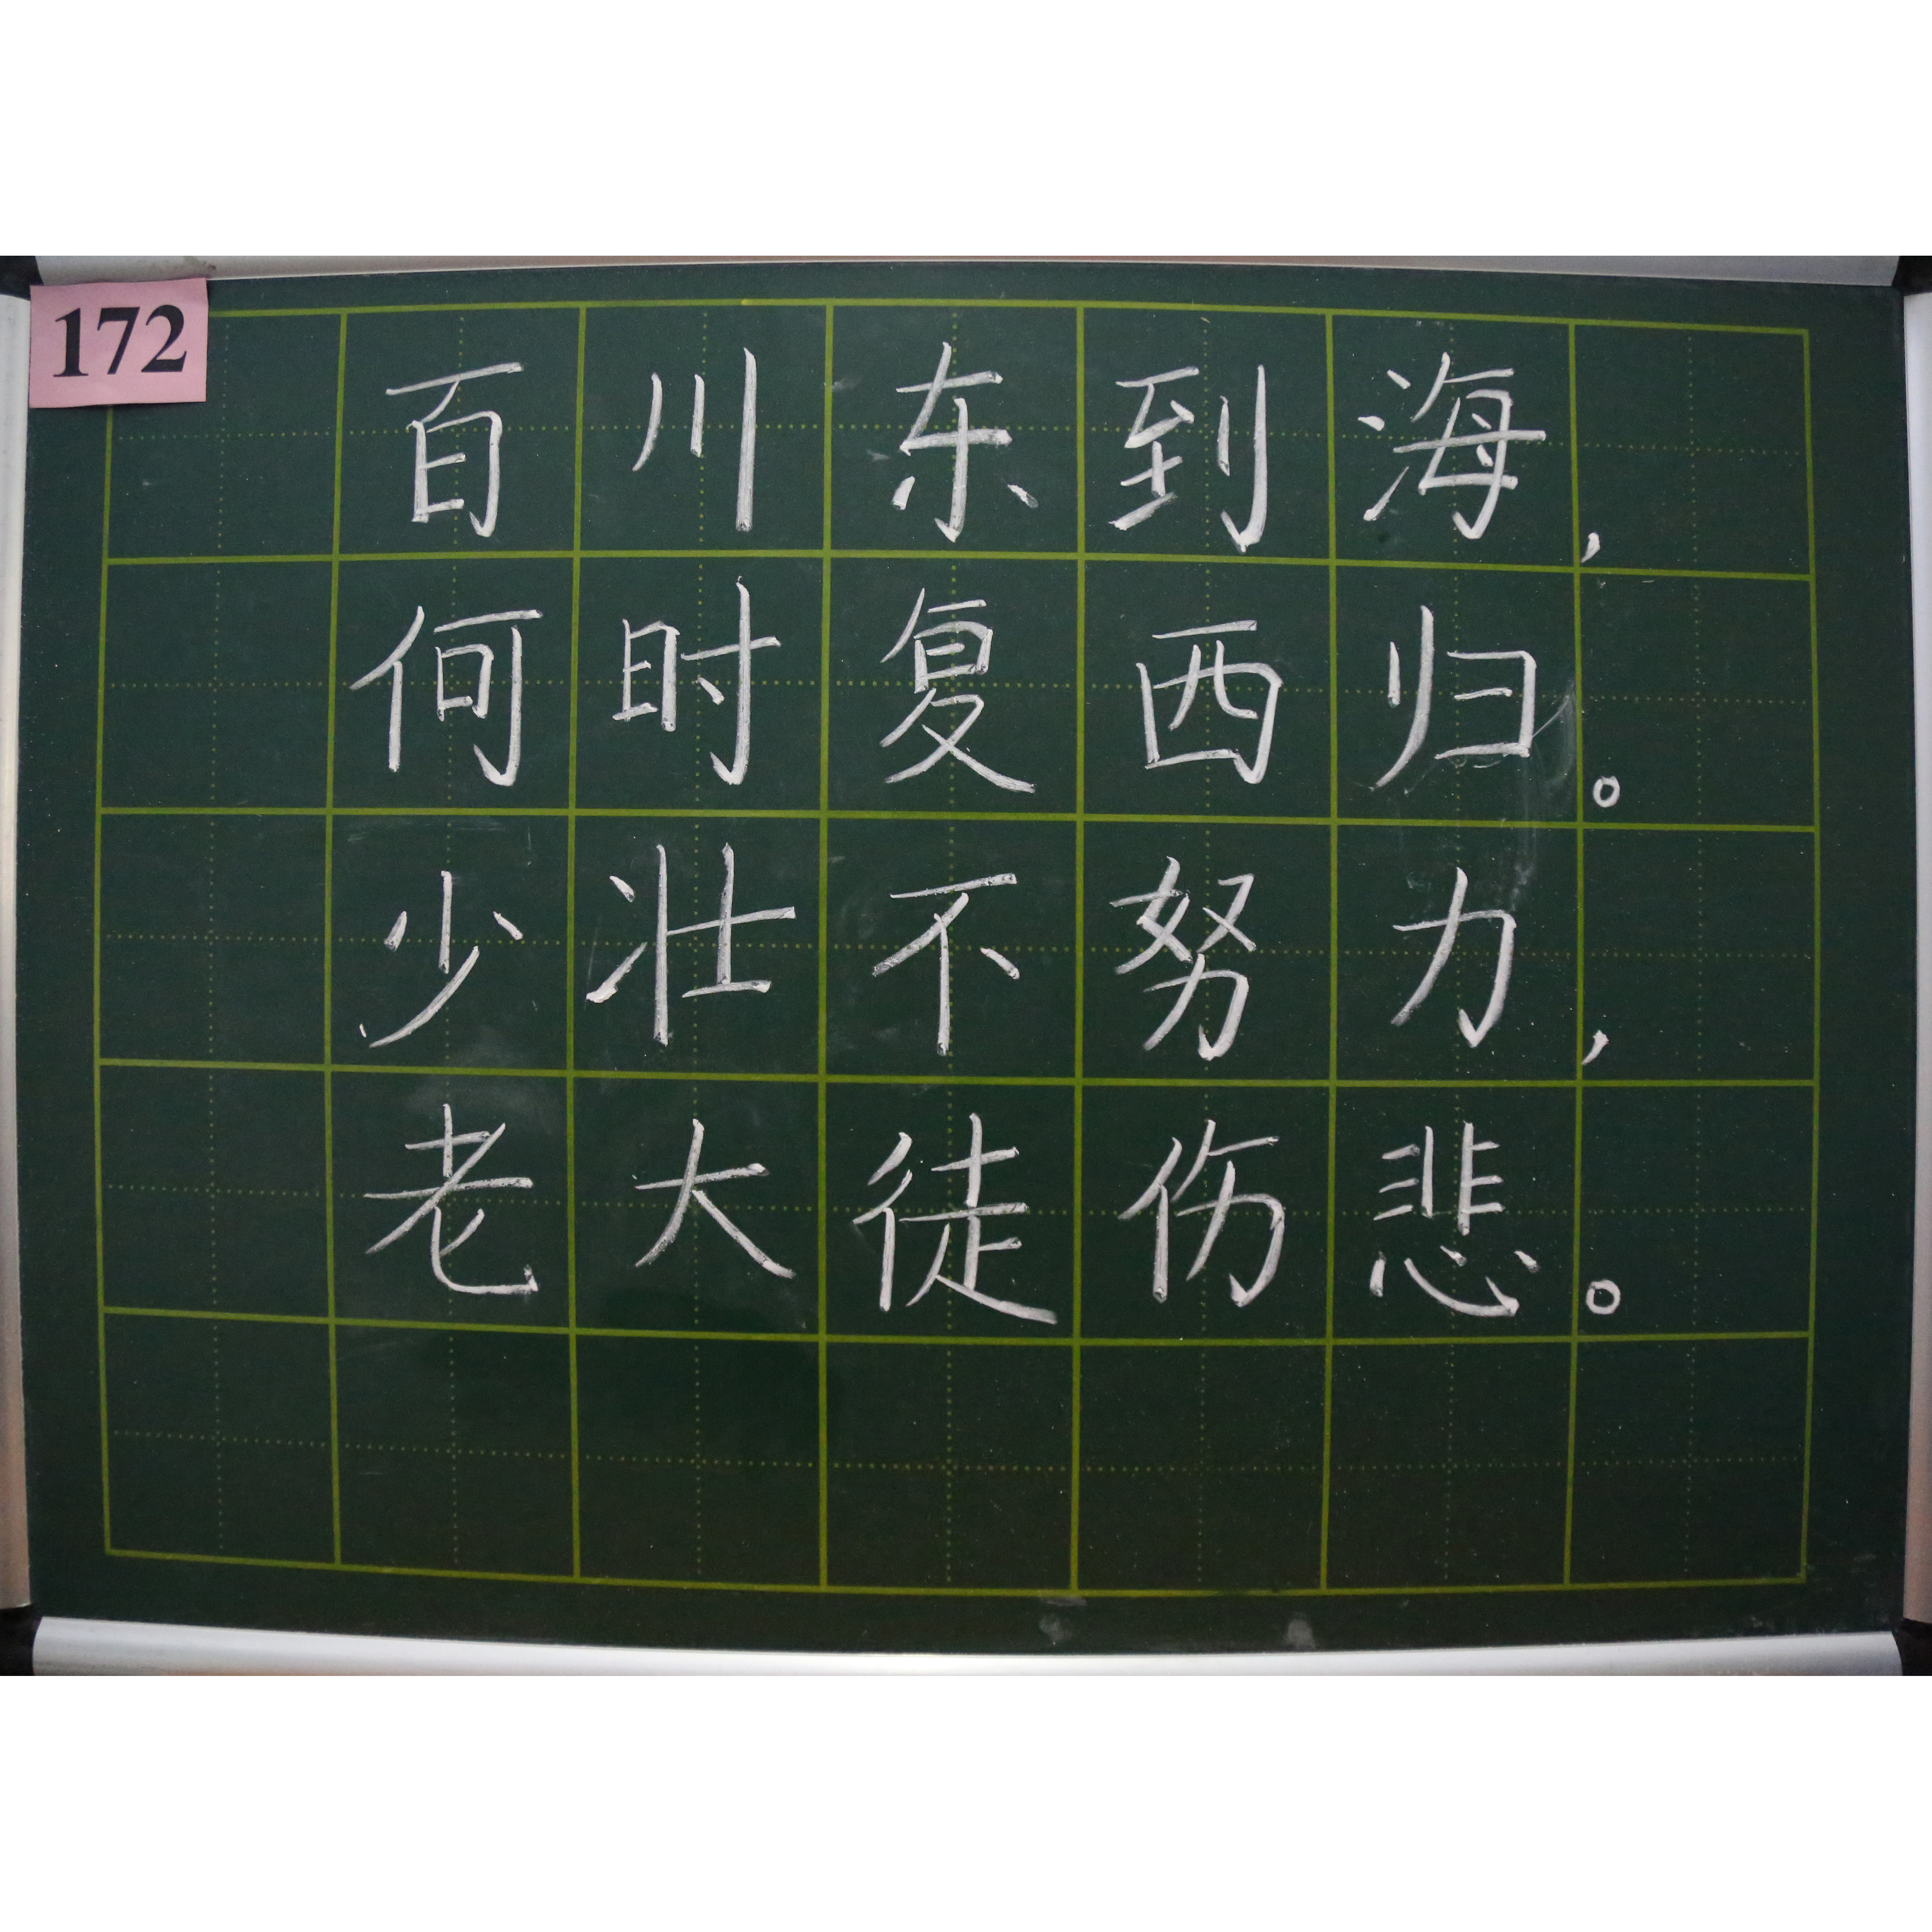 172
百川东到海，
何时复西归。
少壮不努力，
老大徒伤悲。